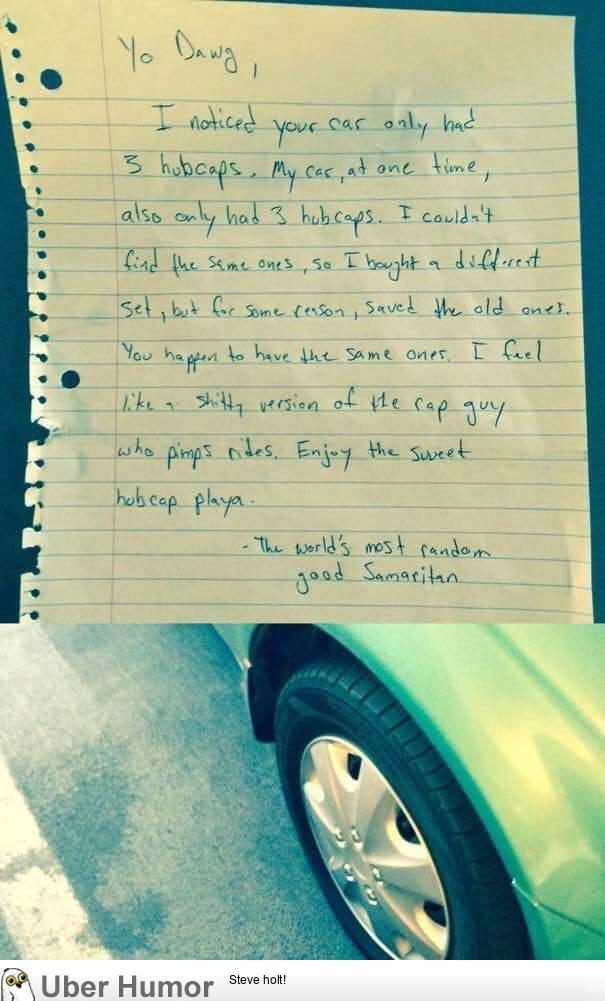 Yo Dawg,
I noticed your car only had
3 hubcaps. My car, at one time,
also only had 3 hubcaps. I couldn't
find the same ones, so I bought a different
set, but for some reason, saved the old ones.
You happen to have the same ones. I feel
like a shitty version of the cap guy
who pimps rides. Enjoy the sweet
hubcap playa.
- The world's most random
good Samaritan
Uber Humor
Steve holt!